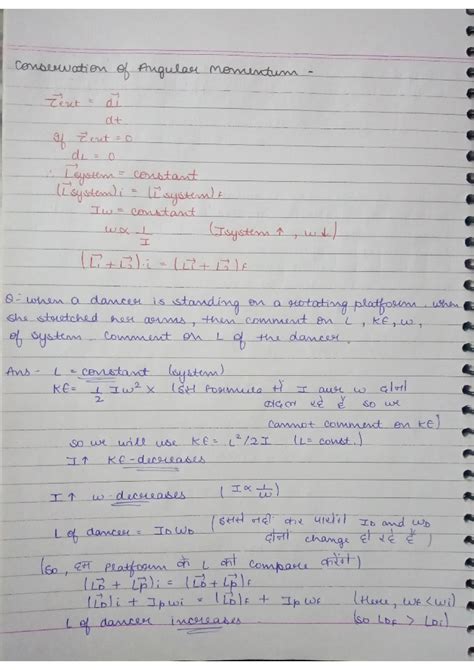 Conservation of Angular Momentum -
τ⃗ext = dL⃗
dt
If τ⃗ext = 0
dL = 0
∴ L⃗system = constant
(L⃗system)i = (L⃗system)f
Iω = constant
ω ∝ 1/I (Isystem ↑, ω↓)
(L⃗1 + L⃗2)i = (L⃗1 + L⃗2)f
Q:- when a dancer is standing on a rotating platform. when
she stretched her arms, then comment on L, KE, ω,
of system. Comment on L of the dancer.
Ans - L = constant (system)
KE = 1/2 Iω² × (इस formula में I aur ω दोनो
बदल रहे हैं so we
cannot comment on KE)
so we will use KE = L²/2I (L = const.)
I↑ KE-decreases
I ↑ ω-decreases (I ∝ 1/ω)
L of dancer = IDωD (इससे नहीं कर पायेंगे ID and ωD
दोनो change हो रहे हैं)
(So, हम Platform के L को compare करेंगे)
(L⃗D + L⃗P)i = (L⃗D + L⃗P)f
(L⃗D)i + Ipωi = (L⃗D)f + Ipωf (Here, ωf<ωi)
L of dancer increases (so LDf > LDi)